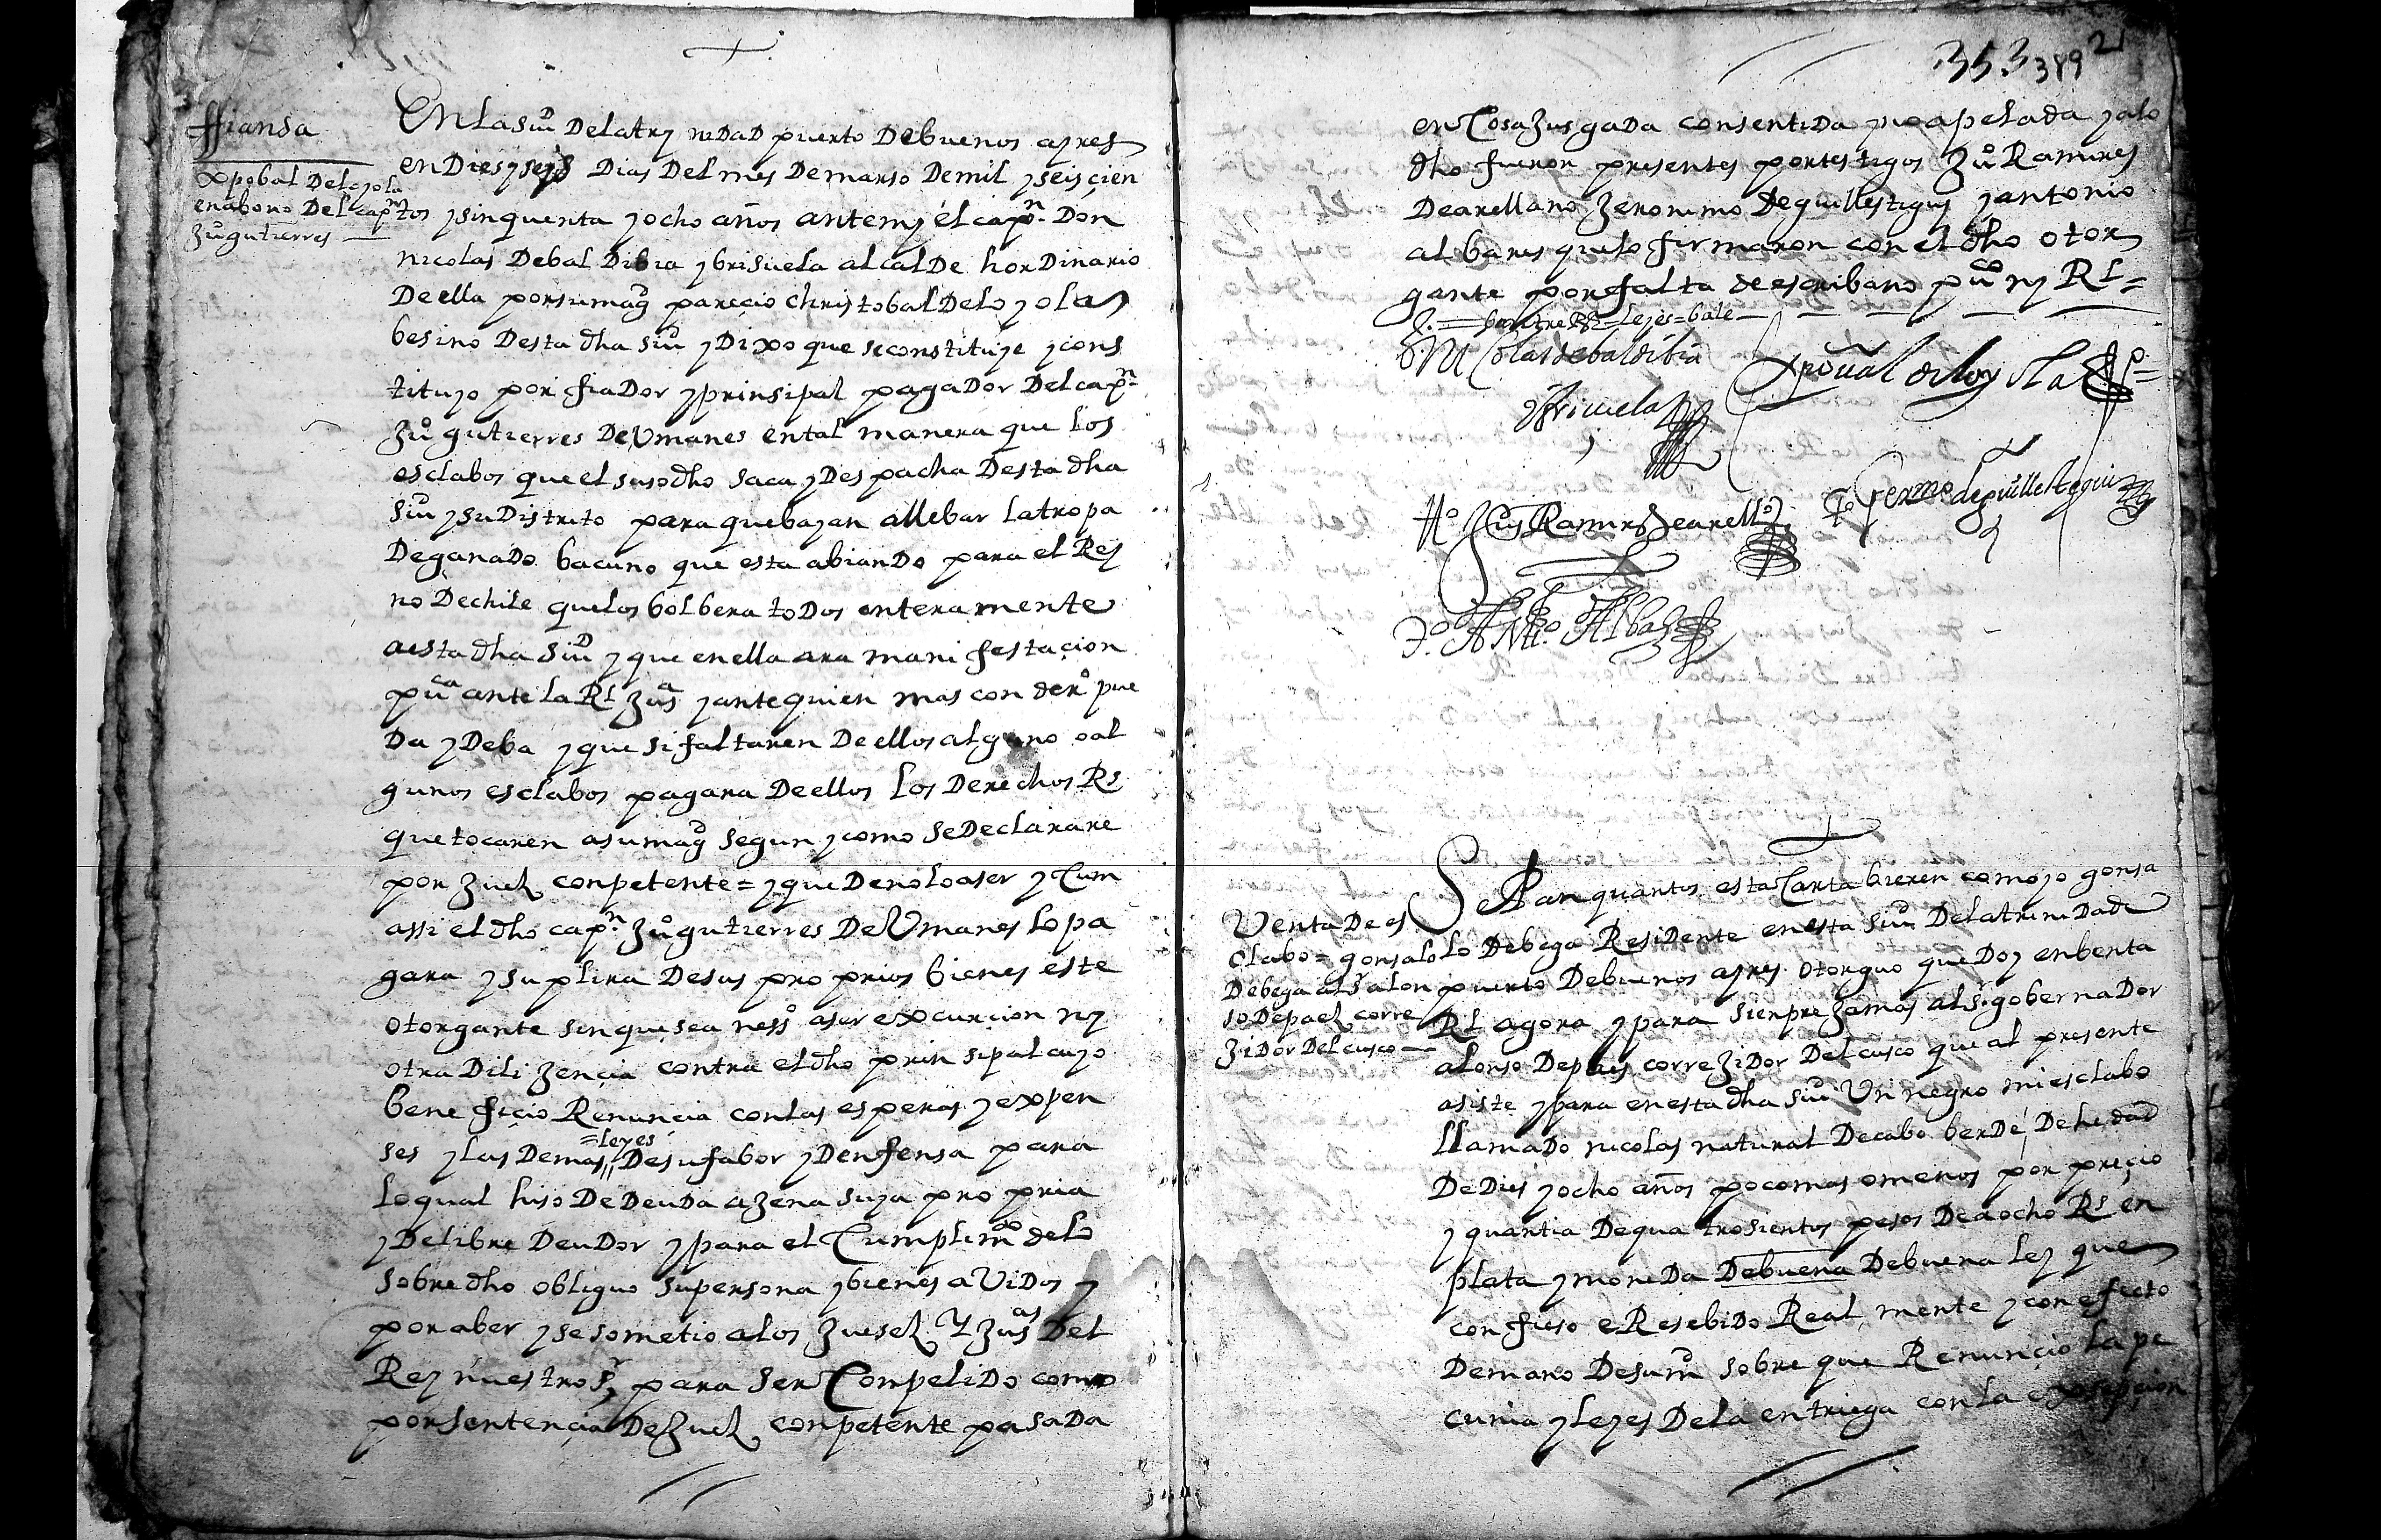 ffiansa
xpobal Deloyola
en abono Del capn
Juo gutierres
En la siud De la trynidad puerto De buenos ayres
en Dies y seis Dias Del mes De marso De mil y seiscien
tos y sinquenta y ocho años ante my el capn. Don
nicolas De baldibia y brisuela alcalde hordinario
De ella por su magd parecio christobal De loyola
besino Desta dha siud y Dixo que se constituye y cons
tituyo por fiador y prinsipal pagador Del capn
Juo gutierres De Umanes en tal manera que los
esclabos que el susodho saca y Despacha Desta dha
siud y su Distrito para que bayan a llebar la tropa
De ganado bacuno que esta abiando para el Rey
no De chile que los bolbera todos enteramente
a esta dha siud y que en ella ara manifestaçion
puca ante la Rl Jusa y ante quien mas con dero pue
da y Deba y que si faltaren De ellos alguno o al
gunos esclabos pagara De ellos los Derechos Rs
que tocaren a su magd segun y como se Declarare
por Juez conpetente = y que De no lo aser y Cum
assi el dho capn. Juo gutierres De Umanes lo pa
gara y suplira De sus proprios bienes este
otorgante sin que sea nesso aser excurçion ny
otra Dilijençia contra el dho prinsipal cuyo
benefiçio Renuncia con las esperas y expen
ses y las Demas =leyes De su fabor y Denfensa para
lo qual hiso De Deuda ajena suya propria
y De libre Deudor y para el Cumplimto de lo
sobre dho obliguo su persona y bienes avidos y
por aber y se sometio a los Jueses Y Jusas Del
Rey nuestro sr para ser Conpelido como
por sentençia De Juez conpetente pasada
353 389 2
en Cosa Jusgada consentida y no apelada y a lo
dho fueron presentes por testigos Juo Ramires
De arellano Jeronimo De guillestiguy y antonio
albares que lo firmaron con el dho otor
gante por falta de escribano puco ny Rl =
entre Rs = leyes = bale
D. Nicolas de baldibia
y brisuela
Xpoual de loyola
to Luis Ramirs De arello
to Germo de guillestegui
to Anto Albars
Venta De es
clabo = gonsalo
De bega al Sr alon
so De paez corre
Jidor Del cusco
Sepan quantos esta Carta bieren como yo gonsa
lo De bega Residente en esta siud De la trinidad
puerto De buenos ayres otorguo que Doy en benta
Rl agora y para sienpre Jamas al Sr. gobernador
alonso De paes correJidor Del cusco que al presente
asiste y para en esta dha siud Un negro mi esclabo
llamado nicolas natural De cabo berde, De hedad
De Dies y ocho años poco mas o menos por preçio
y quantia De quatrosientos pesos De a ocho Rs en
plata y moneda De buena De buena ley que
confieso e Resebido Realmente y con efecto
De mano De su md sobre que Renunçio la pe
cunia y leyes De la entriega con la exsepçion